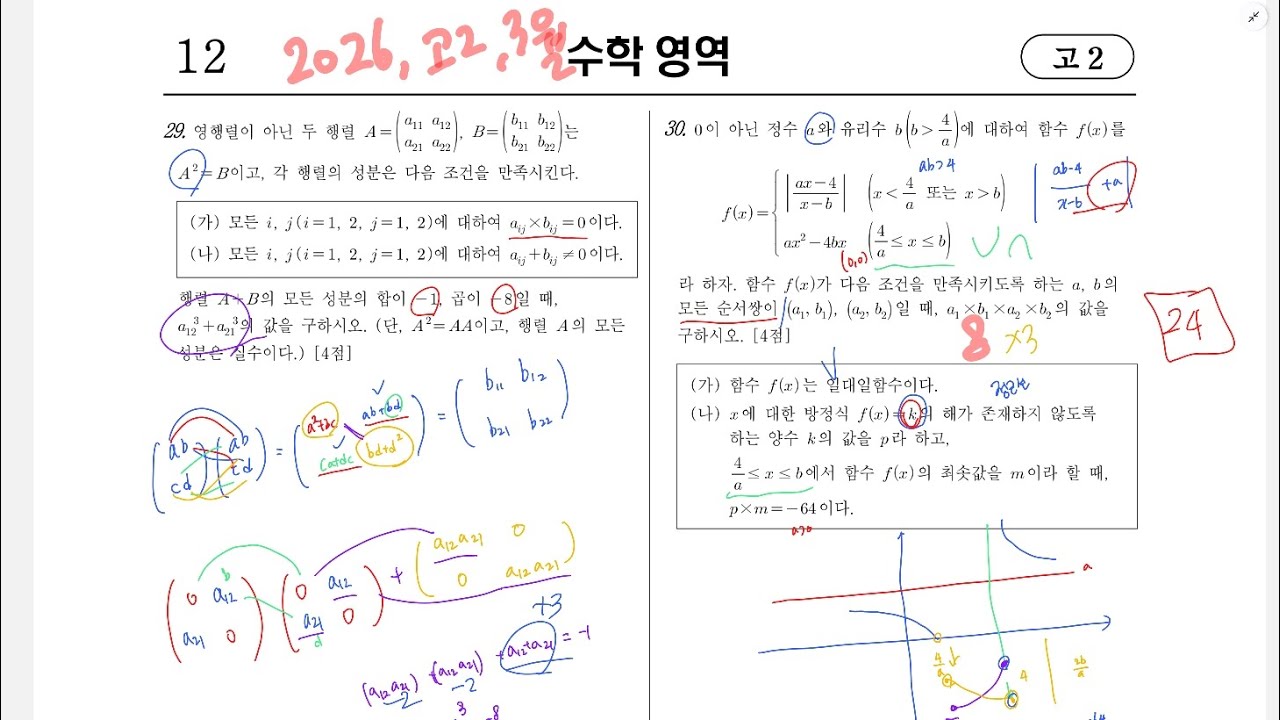 12 2026, 고2, 3월 수학 영역 고 2
29. 영행렬이 아닌 두 행렬 A=(a₁₁ a₁₂ / a₂₁ a₂₂), B=(b₁₁ b₁₂ / b₂₁ b₂₂)는
A²=B이고, 각 행렬의 성분은 다음 조건을 만족시킨다.
(가) 모든 i, j(i=1, 2, j=1, 2)에 대하여 aᵢⱼ×bᵢⱼ=0이다.
(나) 모든 i, j(i=1, 2, j=1, 2)에 대하여 aᵢⱼ+bᵢⱼ≠0이다.
행렬 A+B의 모든 성분의 합이 −1, 곱이 −8일 때,
a₁₂³+a₂₁³의 값을 구하시오. (단, A²=AA이고, 행렬 A의 모든
성분은 실수이다.) [4점]
(ab / cd)(ab / cd) = (a²+bc ab+bd / ca+dc bd+d²) = (b₁₁ b₁₂ / b₂₁ b₂₂)
(0 a₁₂ / a₂₁ 0)(0 a₁₂ / a₂₁ 0) + (a₁₂a₂₁ 0 / 0 a₁₂a₂₁)
b
d
+3
(a₁₂a₂₁) + (a₁₂a₂₁) + a₁₂+a₂₁ = -1
-2 -2
3
-8
30. 0이 아닌 정수 a와 유리수 b(b>4/a)에 대하여 함수 f(x)를
ab>4
f(x)={ |(ax−4)/(x−b)| (x<4/a 또는 x>b)
ax²−4bx (4/a≤x≤b)
| (ab-4)/(x-b) +a |
(0,0)
라 하자. 함수 f(x)가 다음 조건을 만족시키도록 하는 a, b의
모든 순서쌍이 (a₁, b₁), (a₂, b₂)일 때, a₁×b₁×a₂×b₂의 값을
구하시오. [4점]
8 ×3
24
(가) 함수 f(x)는 일대일함수이다.
(나) x에 대한 방정식 f(x)=k의 해가 존재하지 않도록
하는 양수 k의 값을 p라 하고,
4/a≤x≤b에서 함수 f(x)의 최솟값을 m이라 할 때,
p×m=−64이다.
a>0
a
4/a
4
2b/a